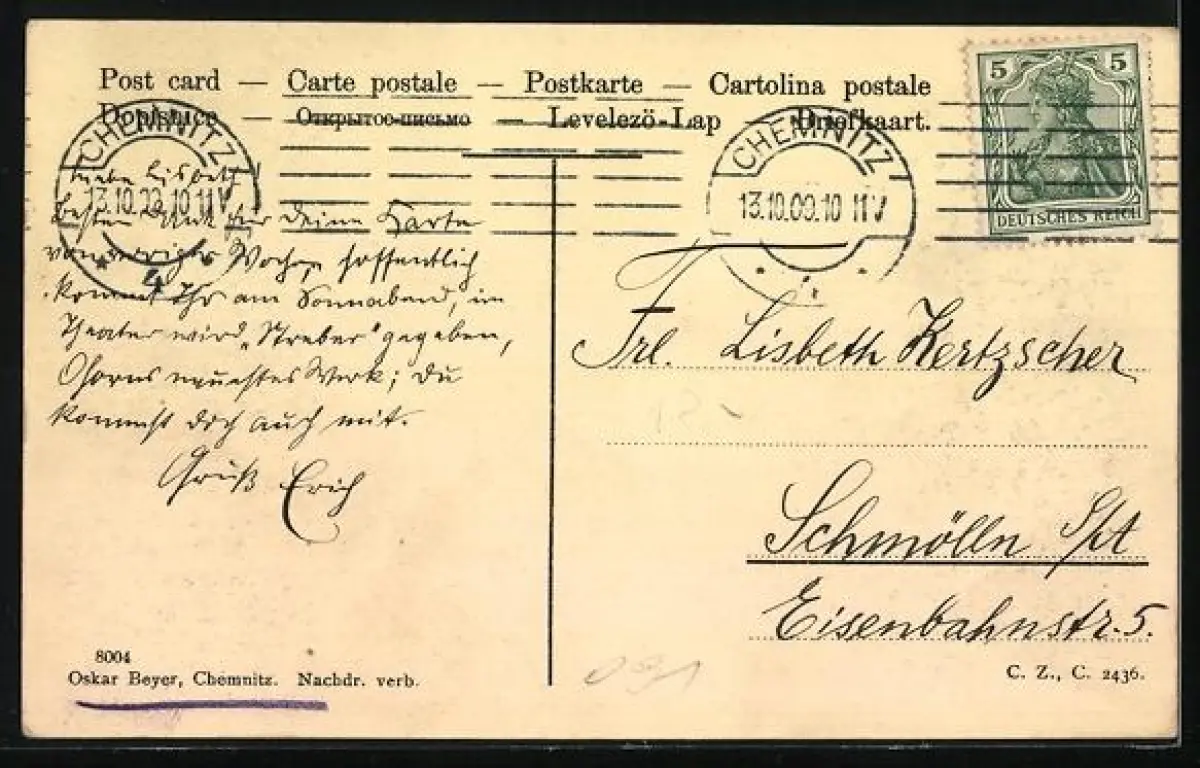 Post card — Carte postale — Postkarte — Cartolina postale
Dopisnice — Открытое письмо — Levelezö-Lap — Briefkaart.
CHEMNITZ
13.10.09.10 11 V
CHEMNITZ
13.10.09.10 11 V
5 5
DEUTSCHES REICH
Liebe Lisbeth
Besten Dank für Deine Karte
von voriger Woche, hoffentlich
kommt Ihr am Sonnabend, im
Theater wird „Streber" gegeben,
Ohorns neuestes Werk; Du
kommst doch auch mit.
Gruß Erich
Frl. Lisbeth Kertzscher
Schmölln S/A
Eisenbahnstr. 5.
8004
Oskar Beyer, Chemnitz. Nachdr. verb.
C. Z., C. 2436.